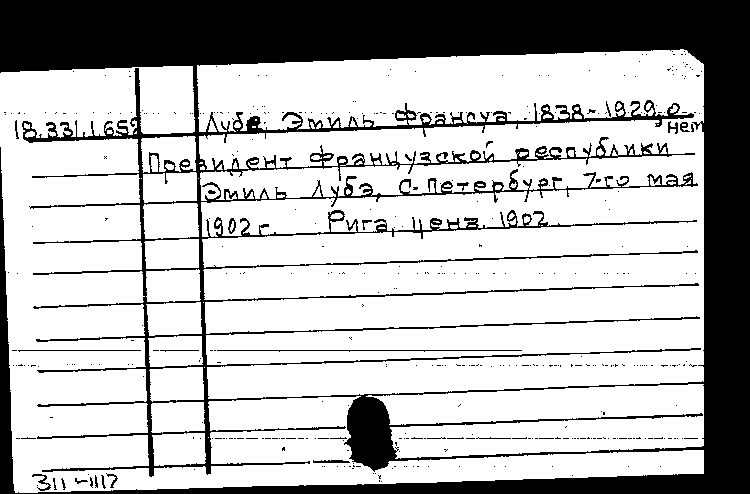 18.331.1.652 Лубе, Эмиль Франсуа, 1838-1929, о нем
Президент Французской республики
Эмиль Лубэ, С-Петербург, 7-го мая
1902 г. Рига, ценз. 1902.
311-1117